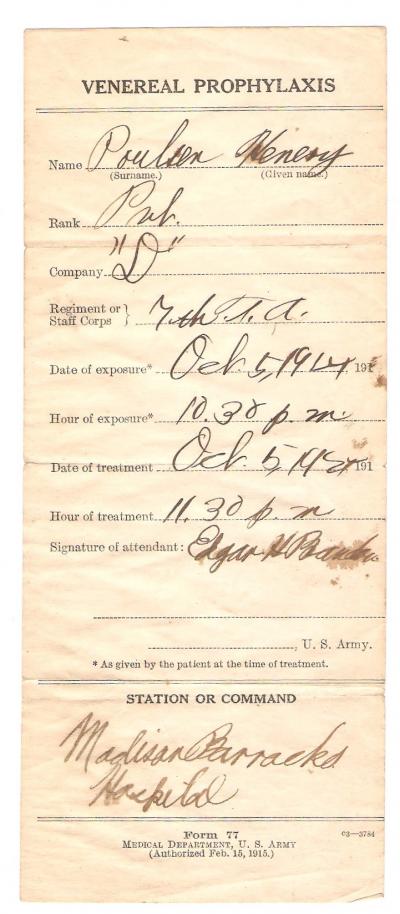 VENEREAL PROPHYLAXIS
Name Poulsen Henery
(Surname.) (Given name.)
Rank Pvt.
Company "D"
Regiment or Staff Corps } 7th F. A.
Date of exposure* Oct. 5, 1914 191
Hour of exposure* 10.30 p. m.
Date of treatment Oct. 5, 1914 191
Hour of treatment 11.30 p. m
Signature of attendant: Edgar H
, U. S. Army.
* As given by the patient at the time of treatment.
STATION OR COMMAND
Madison Barracks
Hospital
Form 77
MEDICAL DEPARTMENT, U. S. ARMY
(Authorized Feb. 15, 1915.)
c3—3784